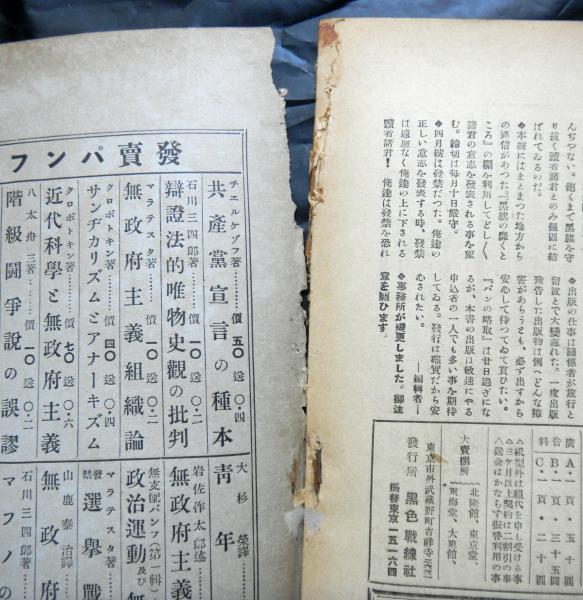 んぢやない。飽くまで黑旗を守
り拔く讀者諸君とのみ强固に結
ばれてゐるのだ。
◆本號にはまとまつた地方から
の通信があつた。『黑旗の靡くと
ころ』の欄を利用してどしどし
諸君の意志を發表される事を望
む。締切は每月十日嚴守。
◆四月號は發禁だつた。俺達の
正しい意志を發表する時、發禁
は遠慮なく俺達の上に下される
讀者諸君！俺達は發禁を恐れ
◆出版の仕事は關係者が旅行と
留置とで大變遲れた。一度出版
豫告した出版物は例へどんな障
害があらうとも、必ず出すから
安心して待つてゐて貰ひたい。
『パンの略取』は廿日過ぎにな
るが、本書の出版は敏速にやる
申込者の一人でも多い事を期待
してゐる。發行は確實だから安
心されたい。
―編輯者―
◆事務所が變更しました。御注
意を願ひます。
廣A・一頁・五十圓
告B・一頁・三十五圓
料C・一頁・二十圓
△紙型外は組代を申し受ける事
△三ケ月以上契約は二割引の事
△送金はかならず振替利用の事
大賣捌所
北隆館、東京堂、
東海堂、大東館、
東京市外武藏野町吉祥寺
發行所 黑色戰線社
振替東京一五一六四
發賣パンフ
チエルケゾフ著
共產黨宣言の種本
價 五〇 送 〇・四
石川三四郎著
辯證法的唯物史觀の批判
價 一〇 送 〇・二
マラテスタ著
無政府主義組織論
價 一〇 送 〇・二
クロポトキン著
サンヂカリズムとアナーキズム
價 四〇 送 〇・四
クロポトキン著
近代科學と無政府主義
價 七〇 送 〇・六
八太舟三著
階級鬪爭說の誤謬
價 一〇 送 〇・二
大杉榮譯
靑年
岩佐作太郎述
無政府主義
無支配パンフ（第一輯）
政治運動及び無
マラテスタ著
發禁 選擧戰
山鹿泰治譯
無政府
石川三四郎著
マフノの